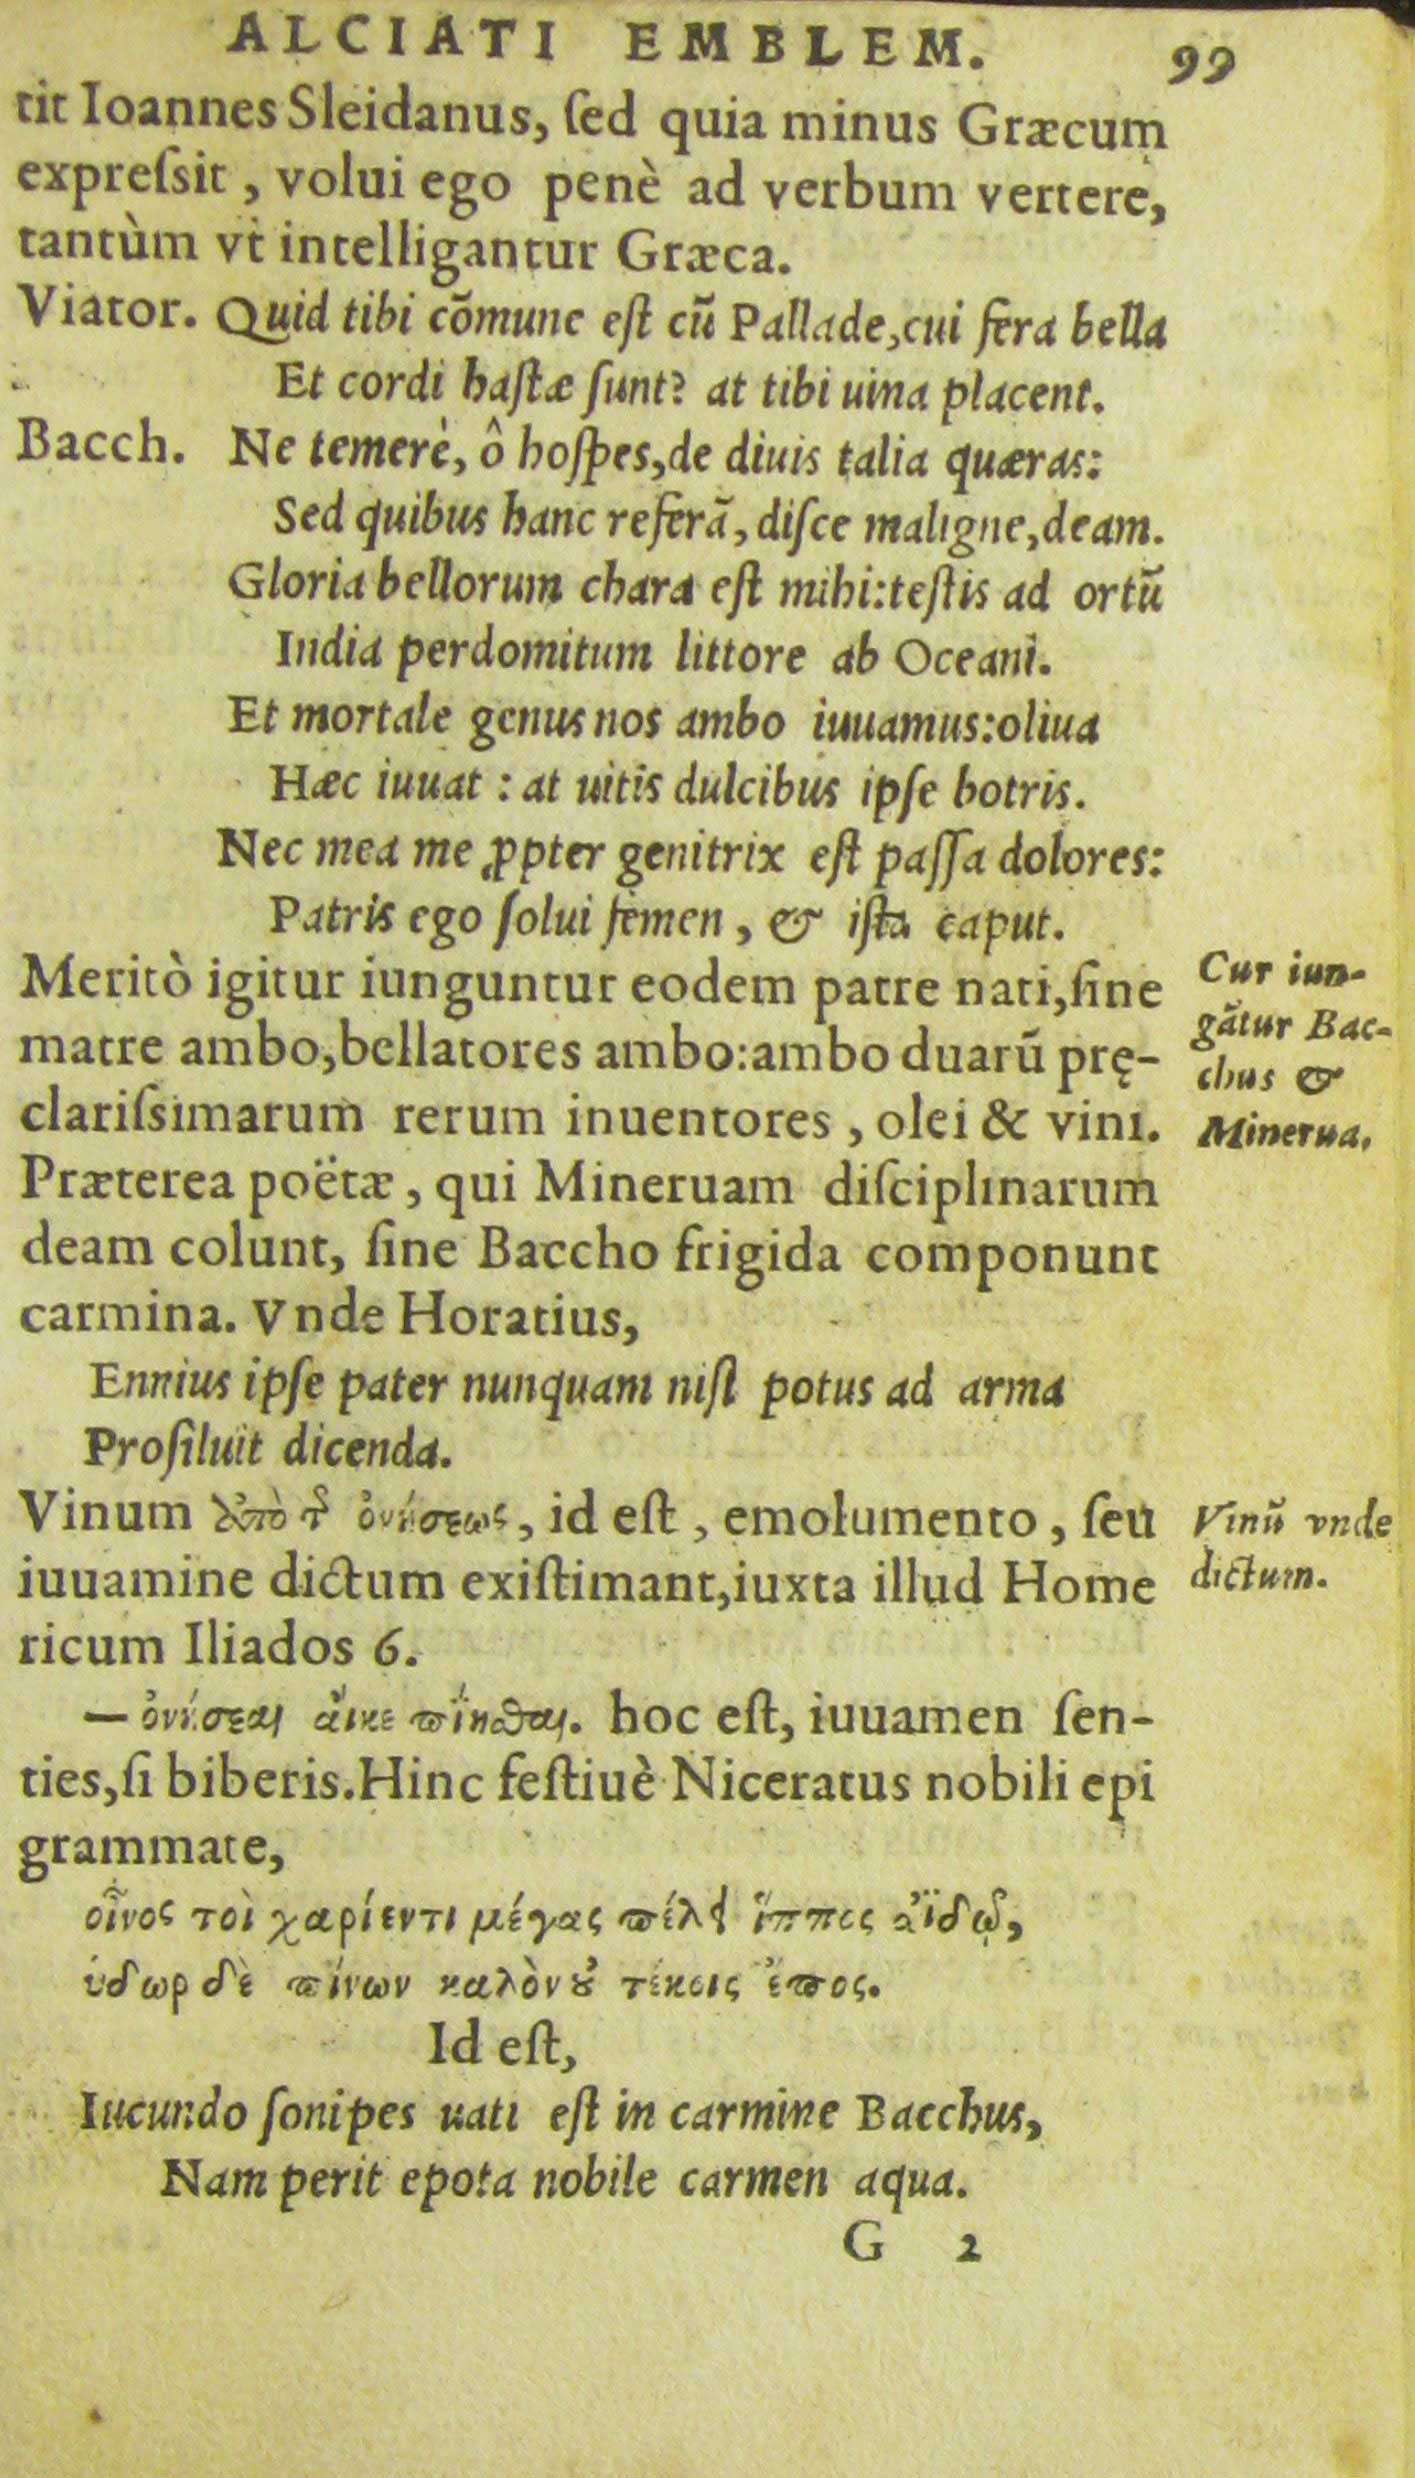 ALCIATI EMBLEM. 99
tit Ioannes Sleidanus, ſed quia minus Græcum
expreſsit, volui ego penè ad verbum vertere,
tantùm vt intelligantur Græca.
Viator. Quid tibi cõmune eſt cũ Pallade, cui fera bella
Et cordi haſtæ ſunt? at tibi uina placent.
Bacch. Ne temerè, ô hoſpes, de diuis talia quæras:
Sed quibus hanc referã, diſce maligne, deam.
Gloria bellorum chara eſt mihi: teſtis ad ortũ
India perdomitum littore ab Oceani.
Et mortale genus nos ambo iuuamus: oliua
Hæc iuuat: at uitis dulcibus ipſe botris.
Nec mea me ꝓpter genitrix eſt paſſa dolores:
Patris ego ſolui femen, & iſta caput.
Meritò igitur iunguntur eodem patre nati, ſine
matre ambo, bellatores ambo: ambo duarũ prę-
clariſsimarum rerum inuentores, olei & vini.
Præterea poëtæ, qui Mineruam diſciplinarum
deam colunt, ſine Baccho frigida componunt
carmina. Vnde Horatius,
Cur iun-
gãtur Bac-
chus &
Minerua.
Ennius ipſe pater nunquam niſi potus ad arma
Proſiluit dicenda.
Vinum ἀπὸ τῆς ὀνήσεως, id eſt, emolumento, ſeu
iuuamine dictum exiſtimant, iuxta illud Home
ricum Iliados 6.
Vinũ vnde
dictum.
— ὀνήσεαι αἴκε πίηθαι. hoc eſt, iuuamen ſen-
ties, ſi biberis. Hinc feſtiuè Niceratus nobili epi
grammate,
οἶνος τοὶ χαρίεντι μέγας πέλει ἵππος ἀϊδῷ,
ὑδωρ δὲ πίνων καλὸν ȣ τέκοις ἔπος.
Id eſt,
Iucundo ſonipes uati eſt in carmine Bacchus,
Nam perit epota nobile carmen aqua.
G 2